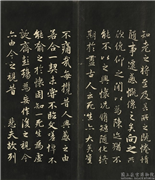 知老之將至及其所之既倦情
隨事遷感慨係之矣向之所
欣俛仰之間以為陳迹猶不
能不以之興懷況脩短隨化終
期於盡古人云死生亦大矣豈
不痛哉每攬昔人興感之由
若合一契未嘗不臨文嗟悼不
能喻之於懷固知一死生為虛
誕齊彭殤為妄作後之視今
亦由今之視昔 悲夫故列